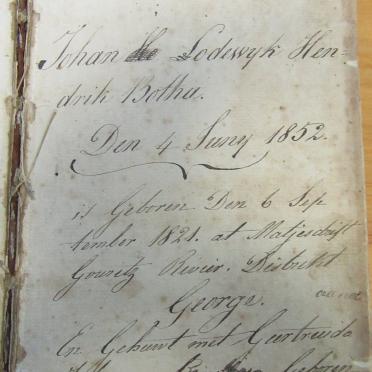 Johan Lodewyk Hen-
drik Botha.
Den 4 Juny 1852.
is Geboren Den 6 Sep
tember 1821. at Matjesdrift
Gouritz Rivier. Distrikt
George.
En Gehuwt met Gertruida
Geboren